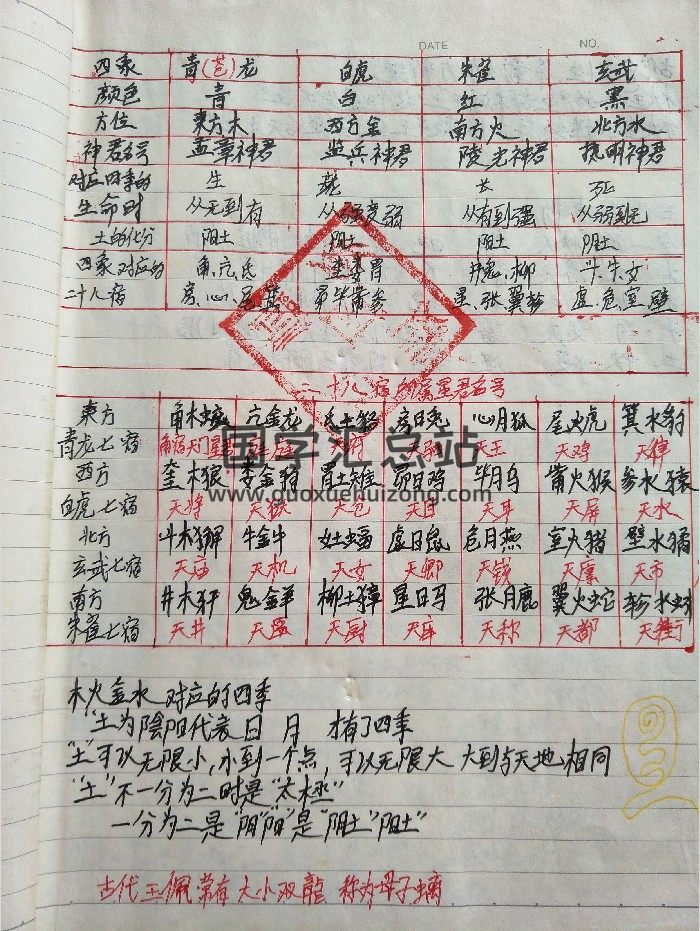 DATE NO.
四象 青(苍)龙 白虎 朱雀 玄武
颜色 青 白 红 黑
方位 东方木 西方金 南方火 北方水
神君名号 孟章神君 监兵神君 陵光神君 执明神君
对应四季的 生 长 死
生命时 从无到有 从强变弱 从有到强 从弱到无
土的化分 阳土 阴土 阳土 阴土
四象对应的 角、亢、氐 奎娄胃 井鬼、柳 斗、牛、女
二十八宿 房、心、尾箕 昴毕觜参 星、张翼轸 虚、危、室、壁
二十八宿的属星君名号
東方 角木蛟 亢金龙 氐土貉 房日兔 心月狐 尾火虎 箕水豹
青龙七宿 角宿天门星 天府 天王 天鸡 天律
西方 奎木狼 娄金狗 胃土雉 昴日鸡 毕月乌 觜火猴 参水猿
白虎七宿 天将 天狱 天仓 天目 天耳 天屏 天水
北方 斗木獬 牛金牛 女土蝠 虚日鼠 危月燕 室火猪 壁水㺄
玄武七宿 天庙 天机 天女 天卿 天钱 天廪 天市
南方 井木犴 鬼金羊 柳土獐 星日马 张月鹿 翼火蛇 轸水蚓
朱雀七宿 天井 天匮 天厨 天库 天称 天都 天街
国学汇总站
www.guoxuehuizong.com
木火金水 对应的四季
"土为陰阳代表 日 月 才有了四季
"土"可以无限小,小到一个点,可以无限大 大到与天地相同
"土"不一分为二时是"太极"
一分为二是"阴""阳"是"阴土""阳土"
古代玉佩常有大小双龍 称为母子螭